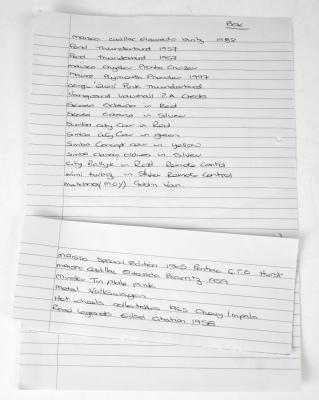 Box
maisto cadillac eldorado biarritz 1982
Ford Thunderbird 1957
Ford Thunderbird 1957
maisto chrysler Pronto Cruizer
Maisto Plymouth Prowler 1997
Corgi 'Elvis' Pink Thunderbird
Vanguard Vauxhall P.A Cresta
Skoda Octavia in Red
Skoda Octavia in Silver
Simba city Car in Red
Simba City Car in green
Simba Concept car in yellow
Simba in Silver
City Rallye in Red Remote Control
mini tuning in Silver Remote Control
matchbox (M.O.Y) Van
maisto Special Edition 1965 Pontiac G.T.O Hurst
maisto cadillac Eldorado Biarritz 1959
Tin plate
Metal Volkswagen
Hot wheels collectables Chevy Impala
Road Legends Edsel Citation 1958